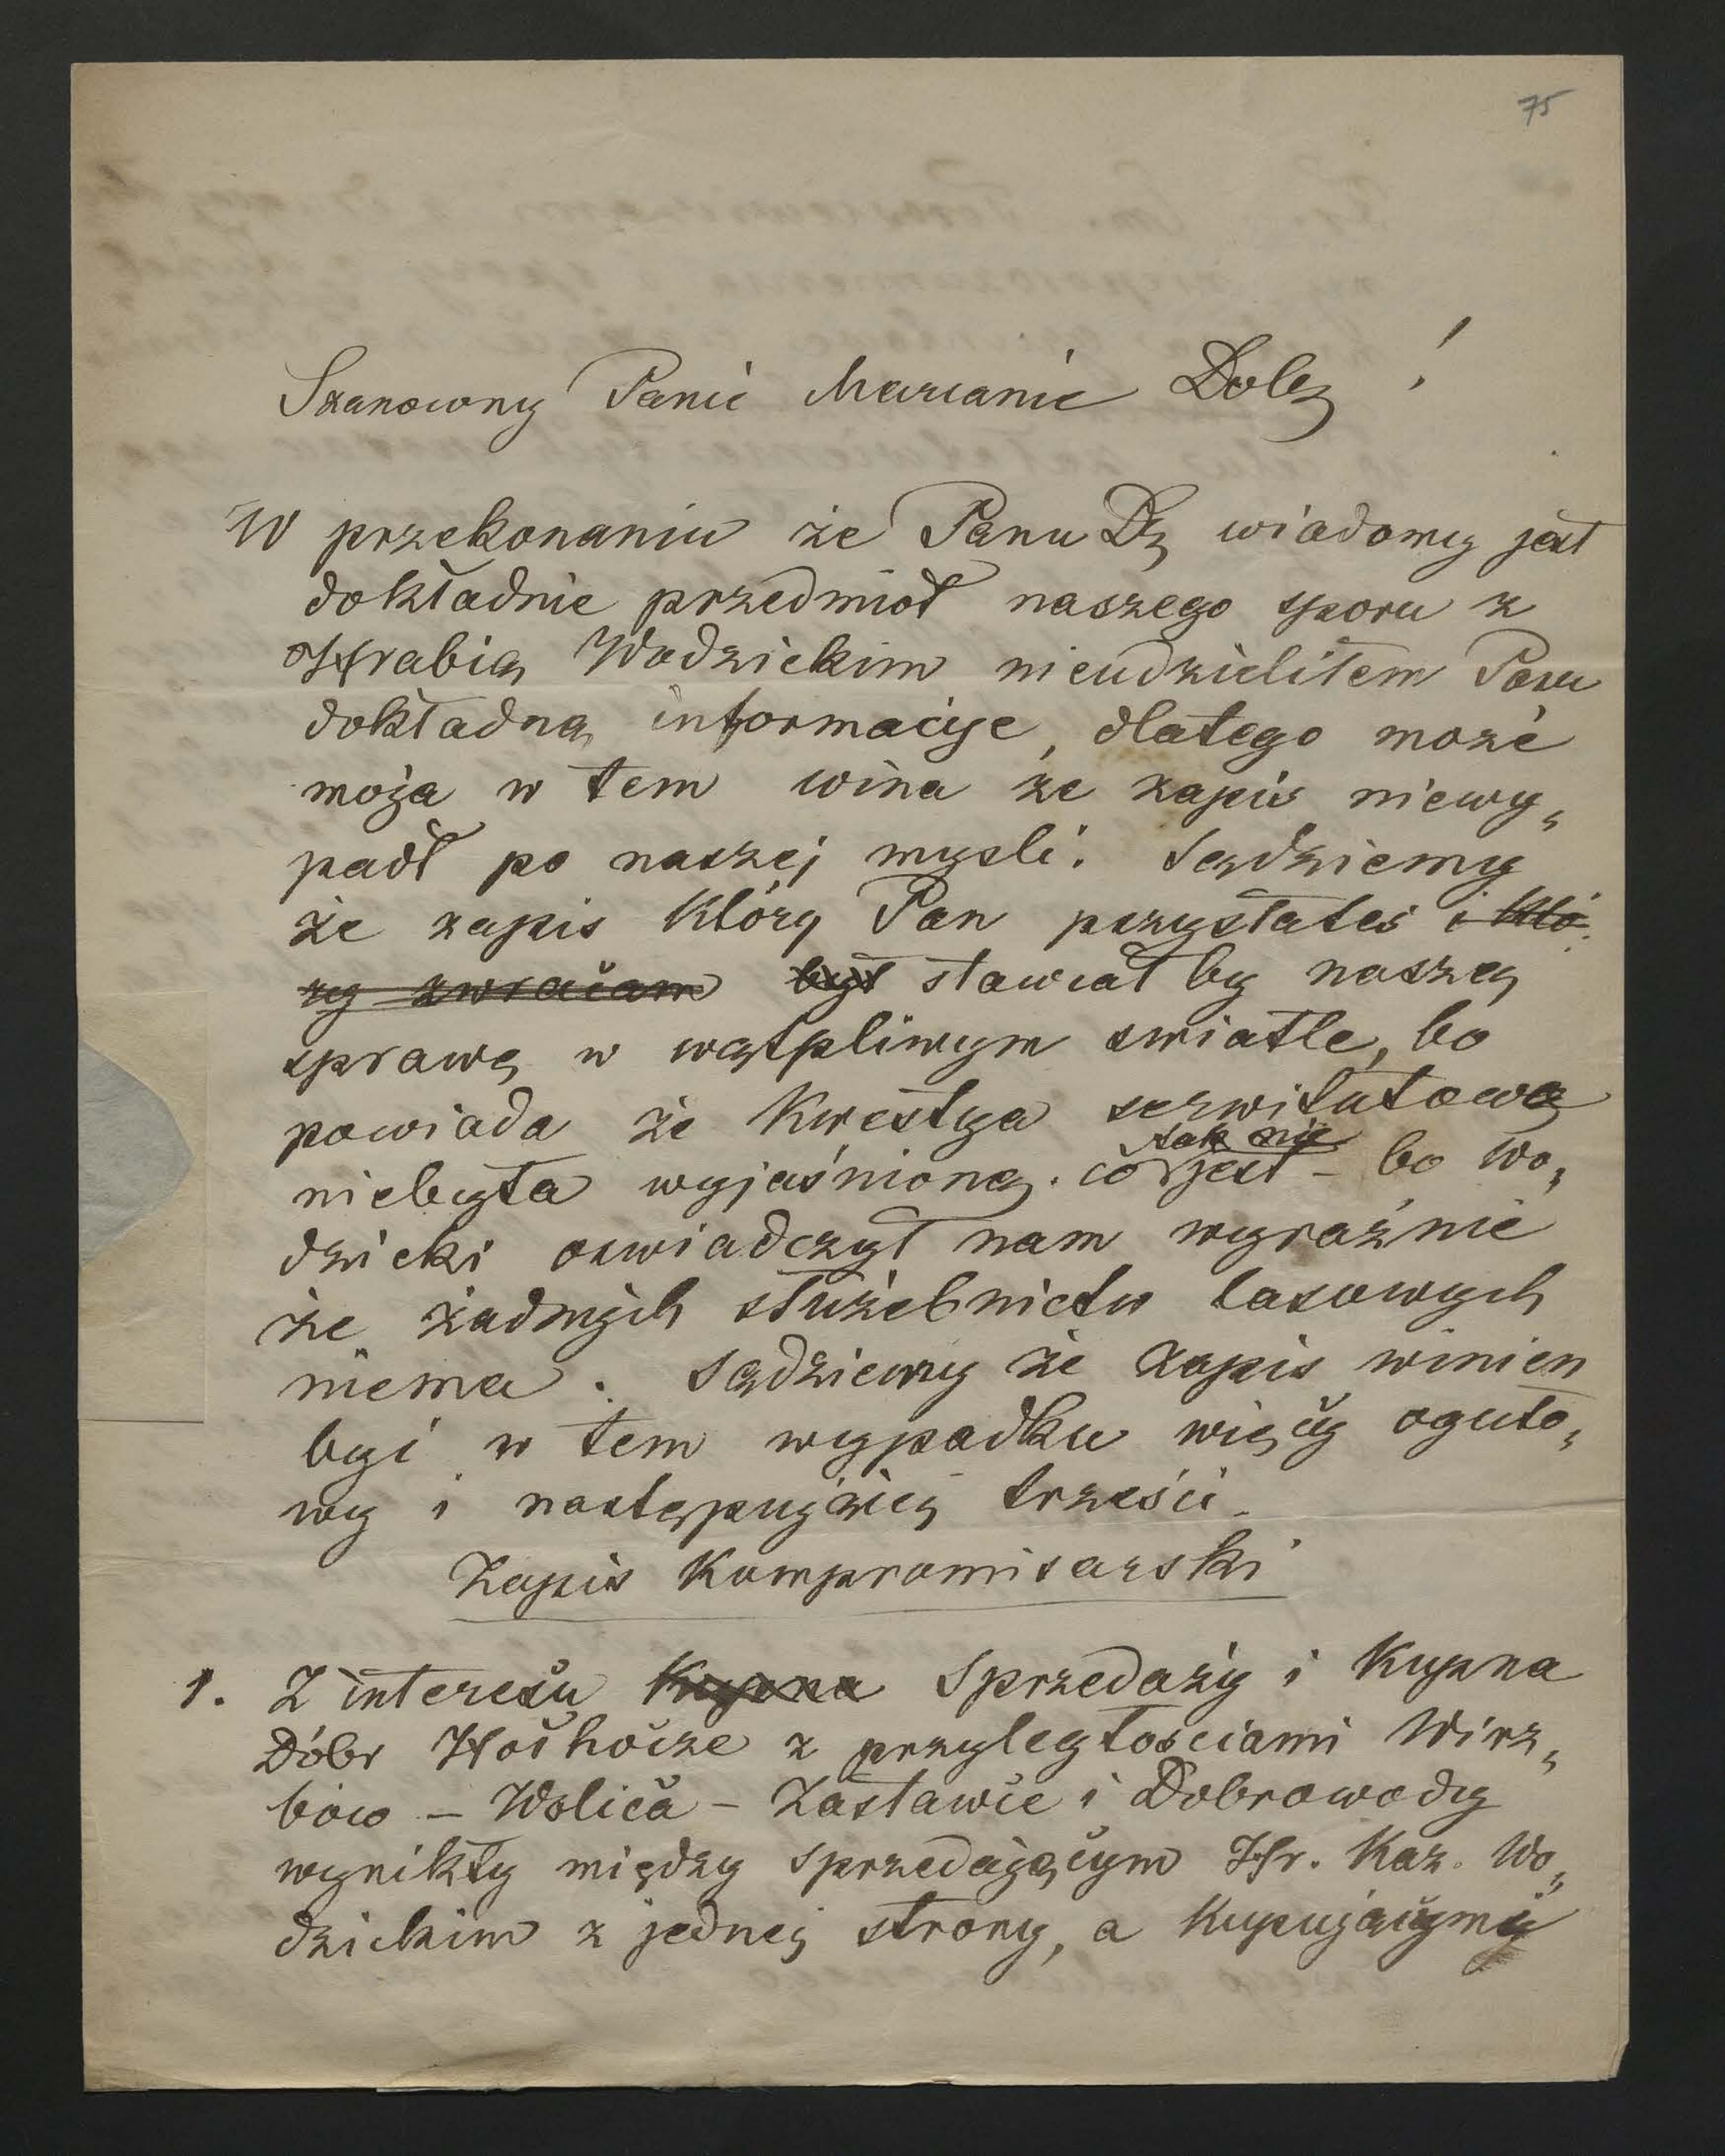 75
Szanowny Panie Maryanie Dobr !
W przekonaniu że Panu Dz wiadomy jest
dokładnie przedmiot naszego sporu z
Hrabią Wodzickim nieudzieliłem Panu
dokładną informacije, dlatego może
moja w tem wina że zapis niewy„
padł po naszej mysli. Sądziemy
że zapis który Pan przysłałeś i któ„
ry zwracam był stawiał by naszą
sprawę w wątpliwym swiatle, bo
powiada że Kwestya serwitutowa
niebyła wyjaśnioną. co tak nie jest – bo Wo„
dzicki oswiadczył nam wyraźnie
że żadnych służebnictw lasowych
niema. Sądziemy że zapis winien
być w tem wypadku więcy oguło„
wy i następującej treści.
Zapis Kompromisarski
1. Z interesu Kupna Sprzedaży i Kupna
Dóbr Hoshocze z przyległosciami Wirz„
bów – Wolica – Zastawce i Dobrowody
wynikły między sprzedającym Hr. Kaz. Wo„
dzickim z jednej strony, a Kupującymi